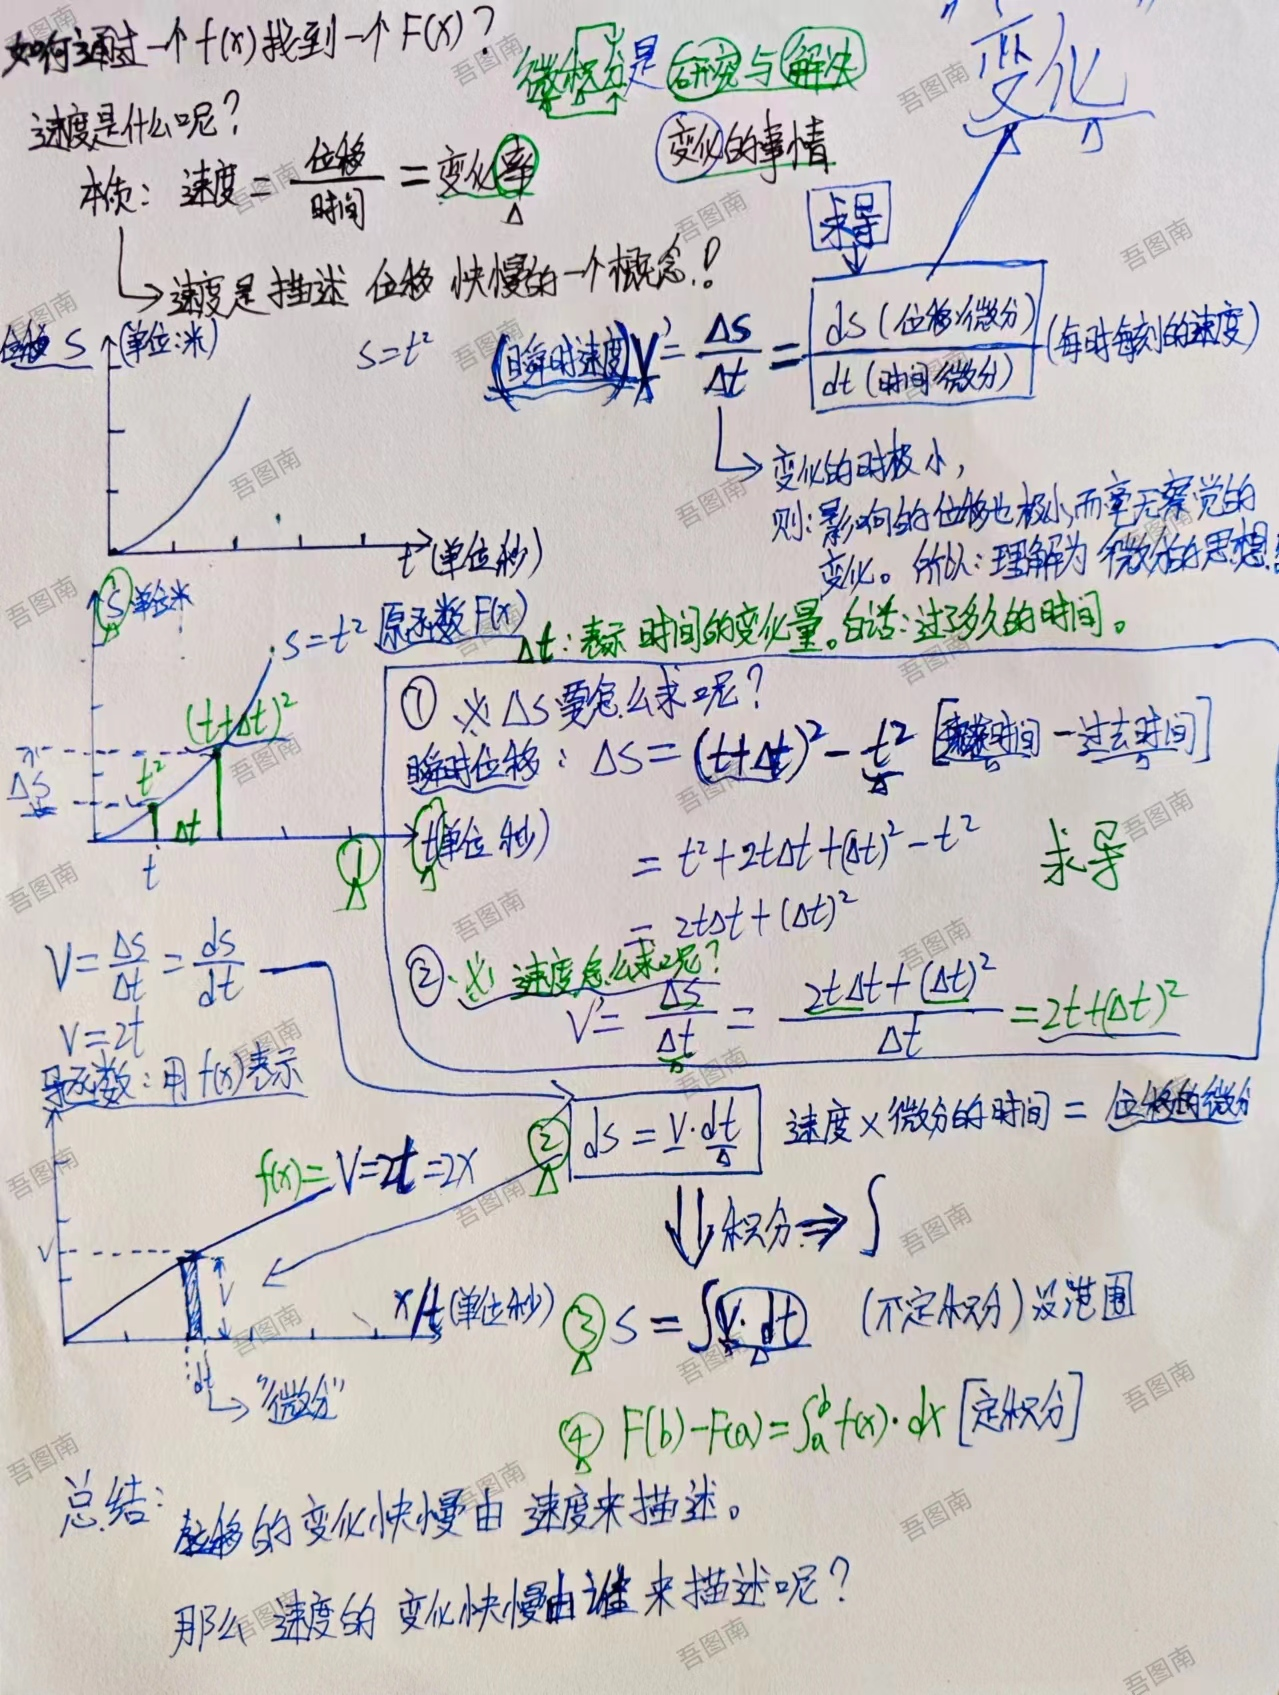 如何通过一个f(x)找到一个F(x)?
微积分是研究与解决
变化的事情
变化
速度是什么呢?
本质: 速度 = 位移/时间 = 变化率
速度是描述位移快慢的一个概念!
求导
位移 S (单位:米)
S=t²
(瞬时速度)V' = ΔS/Δt = ds(位移/微分)/dt(时间/微分) (每时每刻的速度)
变化的时极小,
则:影响的位移也极小,而毫无察觉的
变化。所以:理解为微分的思想
t(单位秒)
S单位米
S=t² 原函数F(x)
Δt:表示时间的变化量。白话:过了多久的时间。
(t+Δt)²
t²
ΔS
Δt
t
t(单位秒)
①
① ※ ΔS要怎么求呢?
瞬时位移: ΔS=(t+Δt)²-t² [时间-过去时间]
= t²+2tΔt+(Δt)²-t²
求导
= 2tΔt+(Δt)²
② ※ 速度怎么求呢?
V' = ΔS/Δt = 2tΔt+(Δt)²/Δt = 2t+(Δt)²
V=ΔS/Δt=ds/dt
V=2t
导函数:用f(x)表示
② ds=V·dt 速度×微分的时间=位移的微分
f(x)=V=2t=2x
积分⇒∫
V
V
x/t(单位秒)
dt
"微分"
③ S=∫V·dt (不定积分)没范围
④ F(b)-F(a)=∫ₐᵇf(x)·dx [定积分]
总结: 位移的变化快慢由速度来描述。
那么速度的变化快慢由谁来描述呢?
吾图南